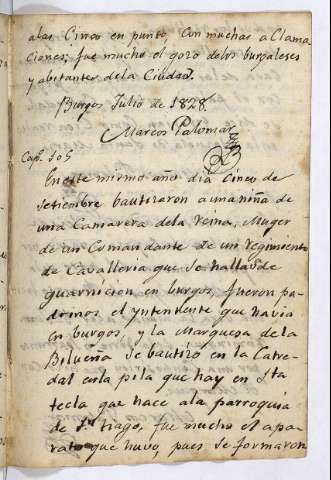 alas Cinco en punto, Con muchas aClama
ciones; fue mucho el gozo delos burgaleses
y abitantes dela Ciudad.
Burgos Julio de 1828.
Marcos Palomar
Cap.º 105
En este mismo año dia Cinco de
setiembre bautizaron a una niña de
una Camarera dela reina, Muger
de un Comandante de un regimiento
de Cavalleria que se hallava de
guarnicion en burgos, fueron pa-
drinos el yntendente que havia
en burgos, y la Marquesa de la
Bilueña se bautizo en la Cate-
dal enla pila que hay en Sta
tecla que hace ala parroquia
de S.tiago, fue mucho el apa-
rato que huvo, pues se formaron